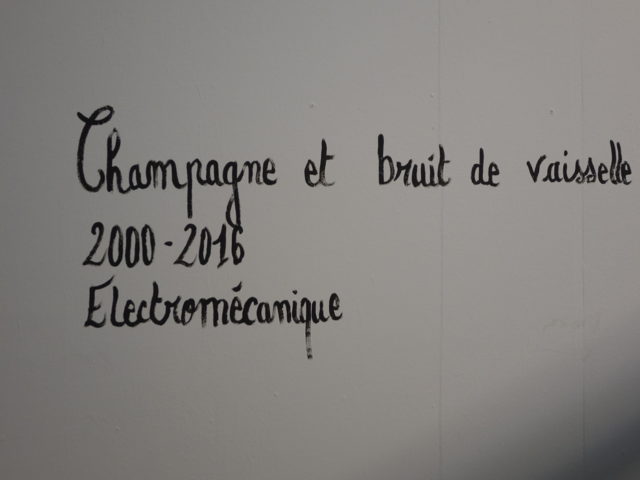 Champagne et bruit de vaisselle
2000-2016
Electromécanique